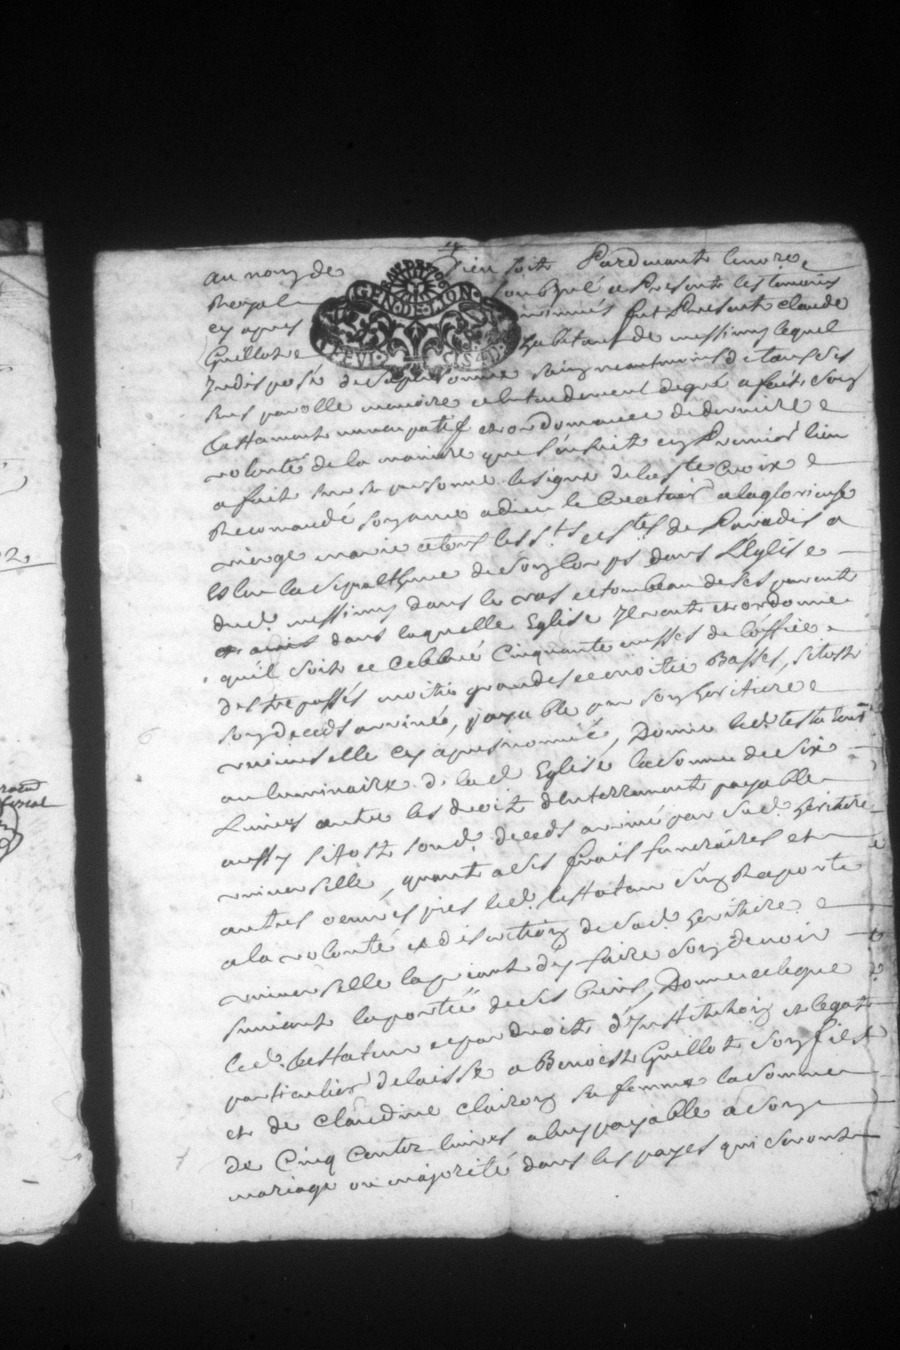 au nom de Dieu soit Pardevant le no.re
Royal soubsigné et Presents les temoins
cy apres nommés fut Present claude
Guillot habitant de messimy lequel
Indisposé de sa personne sain neantmoins de tous ses
sens parolle memoire et entendement de gré a fait son
testament nuncupatif et ordonnance de derniere
volonté de la maniere que s'ensuit en Premier lieu
a fait sur sa personne le signe de la ste Croix
Recomandé son ame a dieu le Createur a la glorieuse
vierge marie et tous les S.ts et s.tes de Paradis a
eslu la sepulthure de son corps dans l'Eglise
dud. messimy dans le vas et tombeau de ses parents
et amis dans laquelle Eglise Il veut et ordonne
qu'il soit celebré Cinquante messes de l'office
des trepassés moitié grandes et moitié Basses, sitost
son deceds arrivé, payable par son heritiere
universelle cy apres nommée, Donne led. testateur
au luminaire de lad. Eglise la somme de six
Livres outre les droits d'Enterrement payable
aussy sitost sond. deceds arrivé par sad. heritiere
universelle, quant a ses frais funeraires et
autres oeuvres pies led. testateur s'en Raporte
a la volonté et discretion de sad. heritiere
universelle la priant d'y faire son devoir
suivant la portée de ses biens, Donne et legue
led. testateur et par droit d'Institution et legat
particulier delaisse a Benoist Guillot son fils
et de Claudine Clairon sa femme la somme
de Cinq Cents livres a luy payable a son
mariage ou majorité dans les payes qui seront
GEN. DE LYON